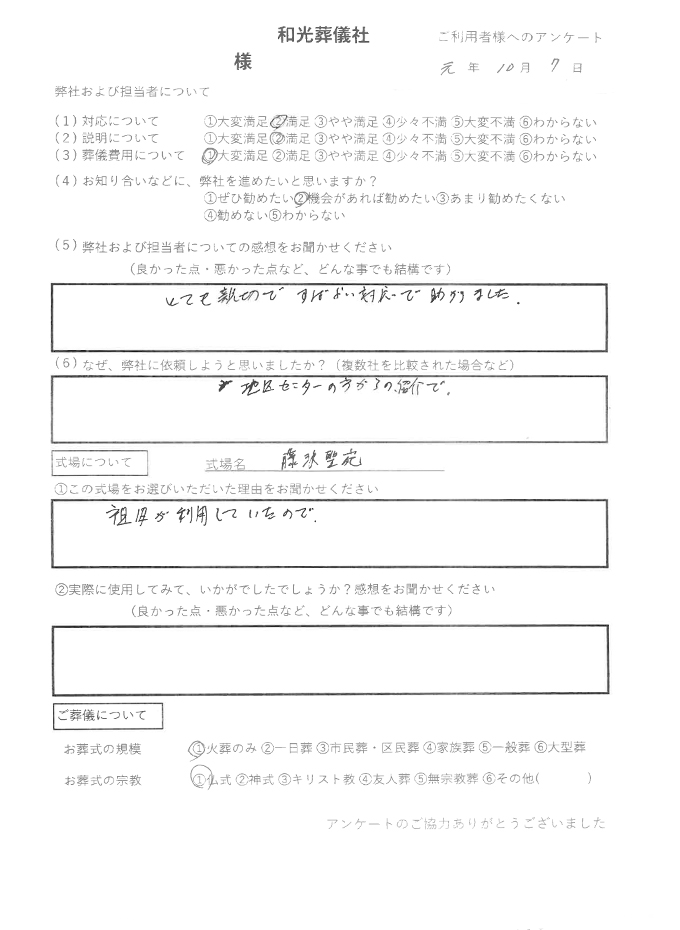 和光葬儀社
ご利用者様へのアンケート
様
元 年 10 月 7 日
弊社および担当者について
(1) 対応について ①大変満足 ②満足 ③やや満足 ④少々不満 ⑤大変不満 ⑥わからない
(2) 説明について ①大変満足 ②満足 ③やや満足 ④少々不満 ⑤大変不満 ⑥わからない
(3) 葬儀費用について ①大変満足 ②満足 ③やや満足 ④少々不満 ⑤大変不満 ⑥わからない
(4) お知り合いなどに、弊社を進めたいと思いますか？
①ぜひ勧めたい②機会があれば勧めたい③あまり勧めたくない
④勧めない⑤わからない
(5) 弊社および担当者についての感想をお聞かせください
（良かった点・悪かった点など、どんな事でも結構です）
とても親切で すばよい対応で 助かりました.
(6) なぜ、弊社に依頼しようと思いましたか？（複数社を比較された場合など）
地区センターの方からの紹介で.
式場について 式場名 藤沢聖苑
①この式場をお選びいただいた理由をお聞かせください
祖母が利用していたので.
②実際に使用してみて、いかがでしたでしょうか？感想をお聞かせください
（良かった点・悪かった点など、どんな事でも結構です）
ご葬儀について
お葬式の規模 ①火葬のみ ②一日葬 ③市民葬・区民葬 ④家族葬 ⑤一般葬 ⑥大型葬
お葬式の宗教 ①仏式 ②神式 ③キリスト教 ④友人葬 ⑤無宗教葬 ⑥その他( )
アンケートのご協力ありがとうございました